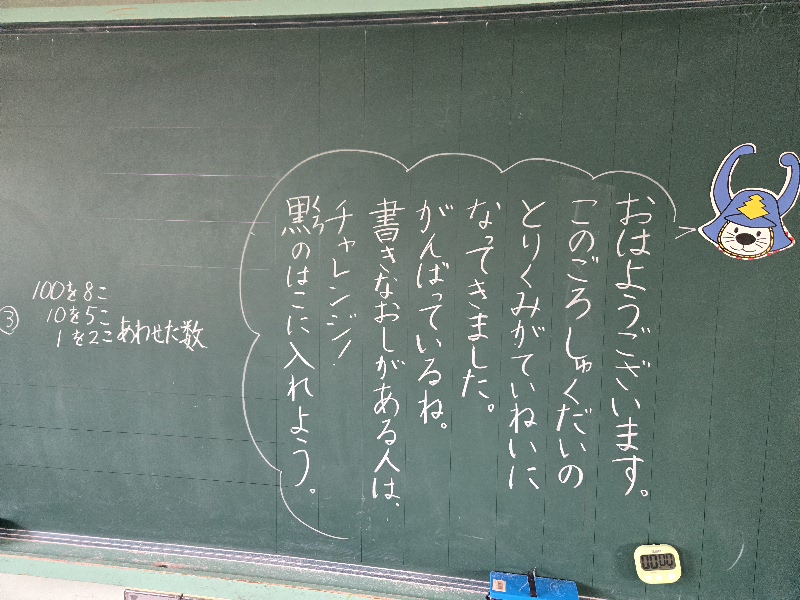 おはようございます。
このごろしゅくだいの
とりくみがていねいに
なってきました。
がんばっているね。
書きなおしがある人は、
チャレンジ!
黔のはこに入れよう。
③
100を8こ
10を5こ
1を2こあわせた数